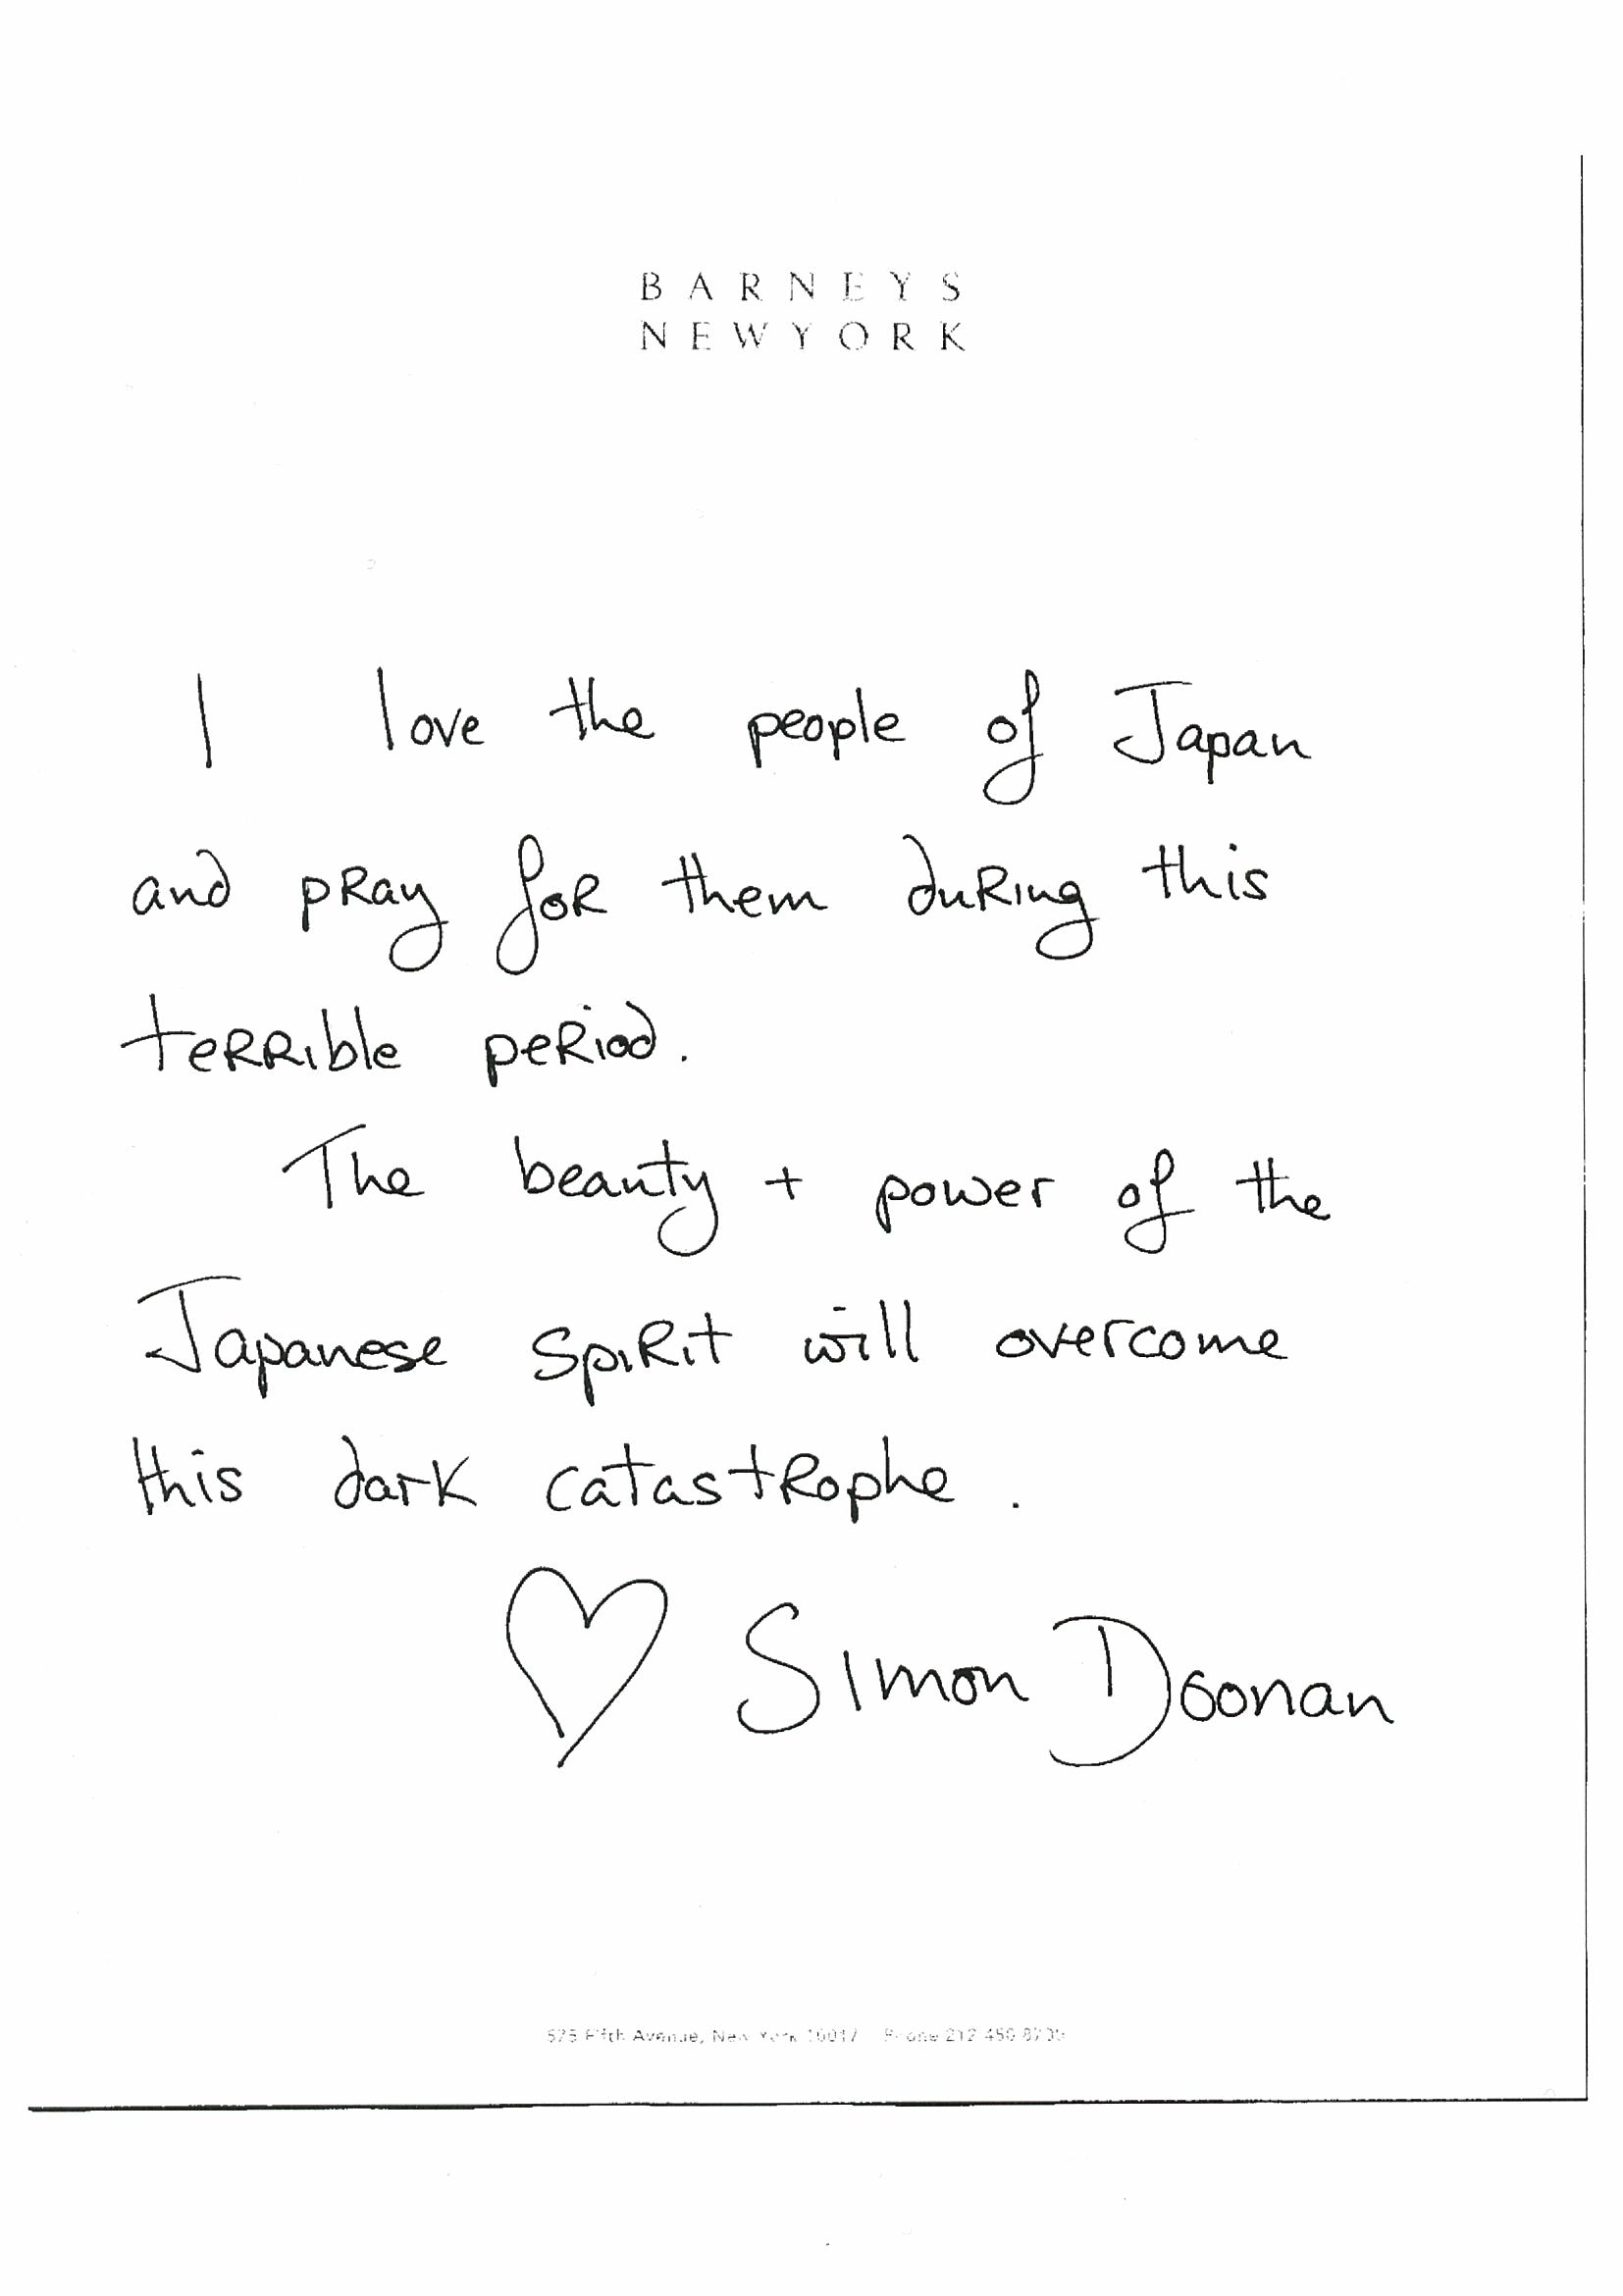 BARNEYS
NEWYORK
I love the people of Japan
and pray for them during this
terrible period.
The beauty + power of the
Japanese spirit will overcome
this dark catastrophe.
♡ Simon Doonan
575 Fifth Avenue, New York 10017 Phone 212 450